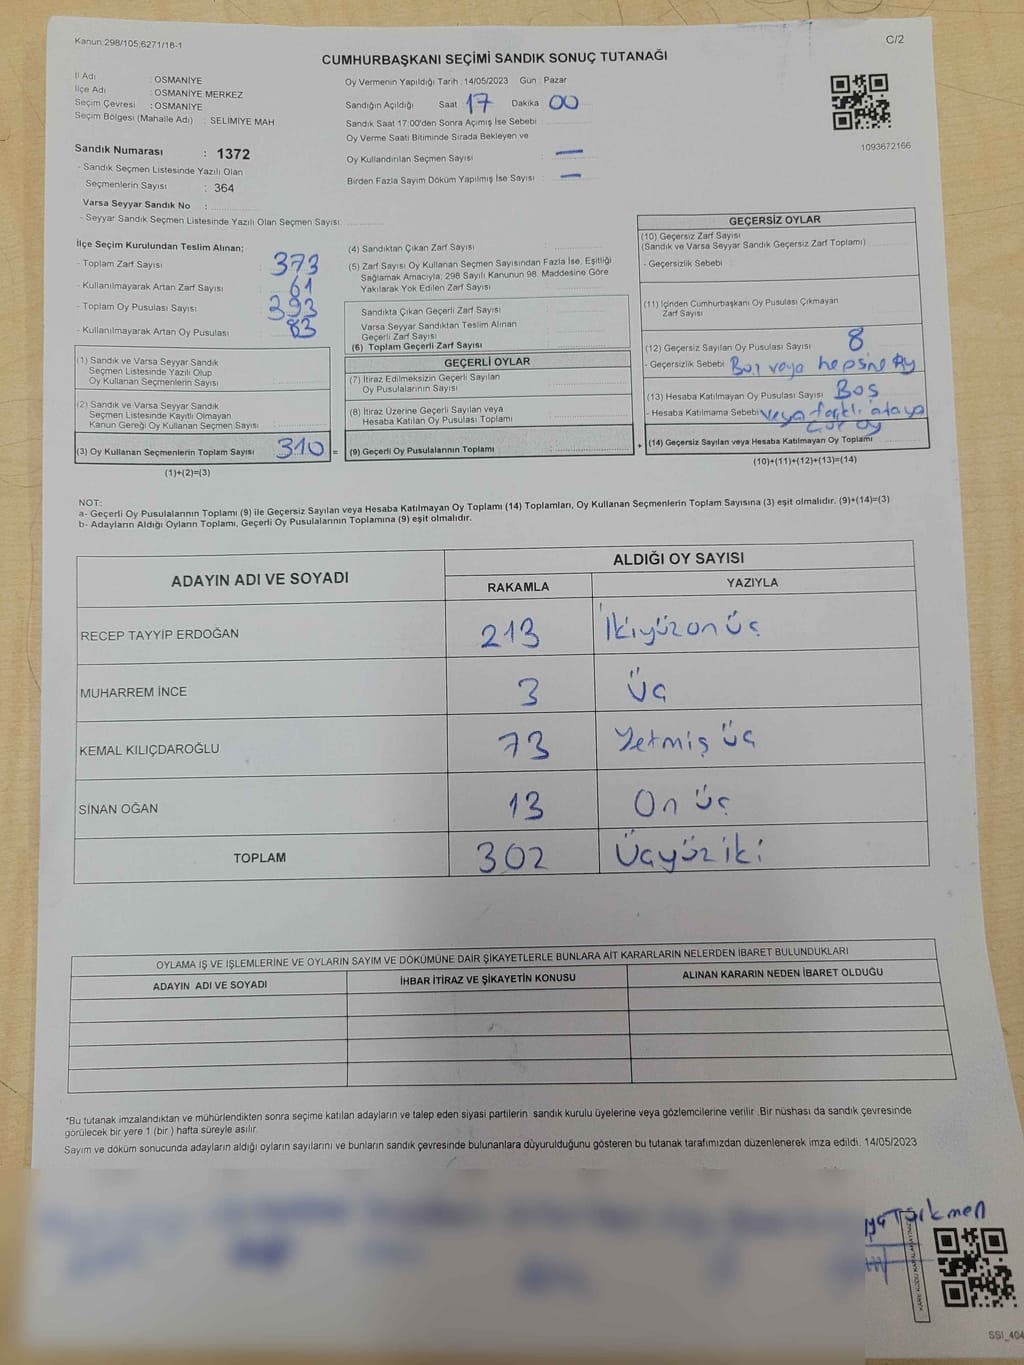 Kanun:298/105;6271/18-1
C/2
CUMHURBAŞKANI SEÇİMİ SANDIK SONUÇ TUTANAĞI
İl Adı : OSMANİYE
İlçe Adı : OSMANİYE MERKEZ
Seçim Çevresi : OSMANİYE
Seçim Bölgesi (Mahalle Adı) : SELIMIYE MAH.
Sandık Numarası : 1372
- Sandık Seçmen Listesinde Yazılı Olan
Seçmenlerin Sayısı : 364
Varsa Seyyar Sandık No :
- Seyyar Sandık Seçmen Listesinde Yazılı Olan Seçmen Sayısı:
Oy Vermenin Yapıldığı Tarih : 14/05/2023 Gün : Pazar
Sandığın Açıldığı Saat 17 Dakika 00
Sandık Saat 17:00'den Sonra Açımış İse Sebebi :
Oy Verme Saati Bitiminde Sırada Bekleyen ve
Oy Kullandırılan Seçmen Sayısı : —
Birden Fazla Sayım Döküm Yapılmış İse Sayısı : —
1093672166
İlçe Seçim Kurulundan Teslim Alınan;
- Toplam Zarf Sayısı : 373
- Kullanılmayarak Artan Zarf Sayısı : 61
- Toplam Oy Pusulası Sayısı : 393
- Kullanılmayarak Artan Oy Pusulası : 83
(1) Sandık ve Varsa Seyyar Sandık
Seçmen Listesinde Yazılı Olup
Oy Kullanan Seçmenlerin Sayısı :
(2) Sandık ve Varsa Seyyar Sandık
Seçmen Listesinde Kayıtlı Olmayan
Kanun Gereği Oy Kullanan Seçmen Sayısı :
(3) Oy Kullanan Seçmenlerin Toplam Sayısı : 310 =
(1)+(2)=(3)
(4) Sandıktan Çıkan Zarf Sayısı :
(5) Zarf Sayısı Oy Kullanan Seçmen Sayısından Fazla İse, Eşitliği
Sağlamak Amacıyla, 298 Sayılı Kanunun 98. Maddesine Göre
Yakılarak Yok Edilen Zarf Sayısı :
Sandıkta Çıkan Geçerli Zarf Sayısı :
Varsa Seyyar Sandıktan Teslim Alınan
Geçerli Zarf Sayısı :
(6) Toplam Geçerli Zarf Sayısı :
GEÇERLİ OYLAR
(7) İtiraz Edilmeksizin Geçerli Sayılan
Oy Pusulalarının Sayısı :
(8) İtiraz Üzerine Geçerli Sayılan veya
Hesaba Katılan Oy Pusulası Toplamı :
(9) Geçerli Oy Pusulalarının Toplamı : +
GEÇERSİZ OYLAR
(10) Geçersiz Zarf Sayısı
(Sandık ve Varsa Seyyar Sandık Geçersiz Zarf Toplamı) :
- Geçersizlik Sebebi :
(11) İçinden Cumhurbaşkanı Oy Pusulası Çıkmayan
Zarf Sayısı :
(12) Geçersiz Sayılan Oy Pusulası Sayısı : 8
- Geçersizlik Sebebi : Boş veya hepsine oy
(13) Hesaba Katılmayan Oy Pusulası Sayısı : Boş
- Hesaba Katılmama Sebebi : veya farklı adaya
(14) Geçersiz Sayılan veya Hesaba Katılmayan Oy Toplamı :
(10)+(11)+(12)+(13)=(14)
NOT:
a- Geçerli Oy Pusulalarının Toplamı (9) ile Geçersiz Sayılan veya Hesaba Katılmayan Oy Toplamı (14) Toplamları, Oy Kullanan Seçmenlerin Toplam Sayısına (3) eşit olmalıdır. (9)+(14)=(3)
b- Adayların Aldığı Oyların Toplamı, Geçerli Oy Pusulalarının Toplamına (9) eşit olmalıdır.
ADAYIN ADI VE SOYADI
ALDIĞI OY SAYISI
RAKAMLA YAZIYLA
RECEP TAYYİP ERDOĞAN 213 İkiyüzon üç
MUHARREM İNCE 3 Üç
KEMAL KILIÇDAROĞLU 73 Yetmiş üç
SİNAN OĞAN 13 On üç
TOPLAM 302 Üçyüz iki
OYLAMA İŞ VE İŞLEMLERİNE VE OYLARIN SAYIM VE DÖKÜMÜNE DAİR ŞİKAYETLERLE BUNLARA AİT KARARLARIN NELERDEN İBARET BULUNDUKLARI
ADAYIN ADI VE SOYADI İHBAR İTİRAZ VE ŞİKAYETİN KONUSU ALINAN KARARIN NEDEN İBARET OLDUĞU
*Bu tutanak imzalandıktan ve mühürlendikten sonra seçime katılan adayların ve talep eden siyasi partilerin sandık kurulu üyelerine veya gözlemcilerine verilir .Bir nüshası da sandık çevresinde
görülecek bir yere 1 (bir ) hafta süreyle asılır.
Sayım ve döküm sonucunda adayların aldığı oyların sayılarını ve bunların sandık çevresinde bulunanlara düyurulduğunu gösteren bu tutanak tarafımızdan düzenlenerek imza edildi. 14/05/2023
Türkmen
SSI_404